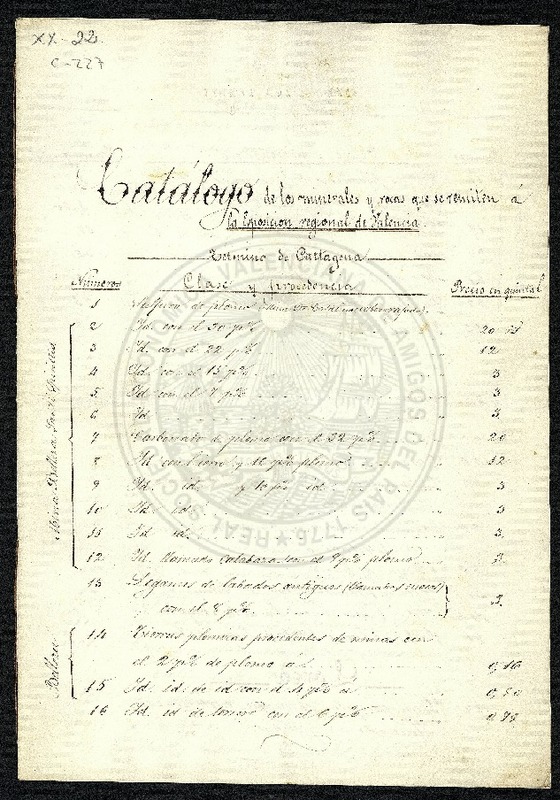 XX.-22.
C-227
Catálogo de los minerales y rocas que se remiten á
la Exposicion regional de Valencia.
Termino de Cartagena
Numeros Clase y procedencia Precio en quintal
1 Sulfuro de plomo
2 Id. con el 30 p% 20
3 Id. con el 22 p% 12
4 Id. con el 15 p% 3
5 Id. con el 7 p% 3
6 Id. 3
7 Carbonato de plomo con el 32 p% 20
8 Id. con hierro y 12 p% plomo 32
9 Id. id. y 10 p% id. 3
10 Id. id. 3
11 Id. id. 3.
12 Id. llamado calabaza con el 9 p% plomo 3.
13 de labados antiguos
con el 8 p% 3.
14 Tierras plomizas procidentes de minas con
el 2 p% de plomo a 0,16
15 Id. id. de id con el 4 p% á 0,50
16 Id. id de con el 6 p%
Mina
REAL SOCIEDAD VALENCIANA DE AMIGOS DEL PAIS 1776